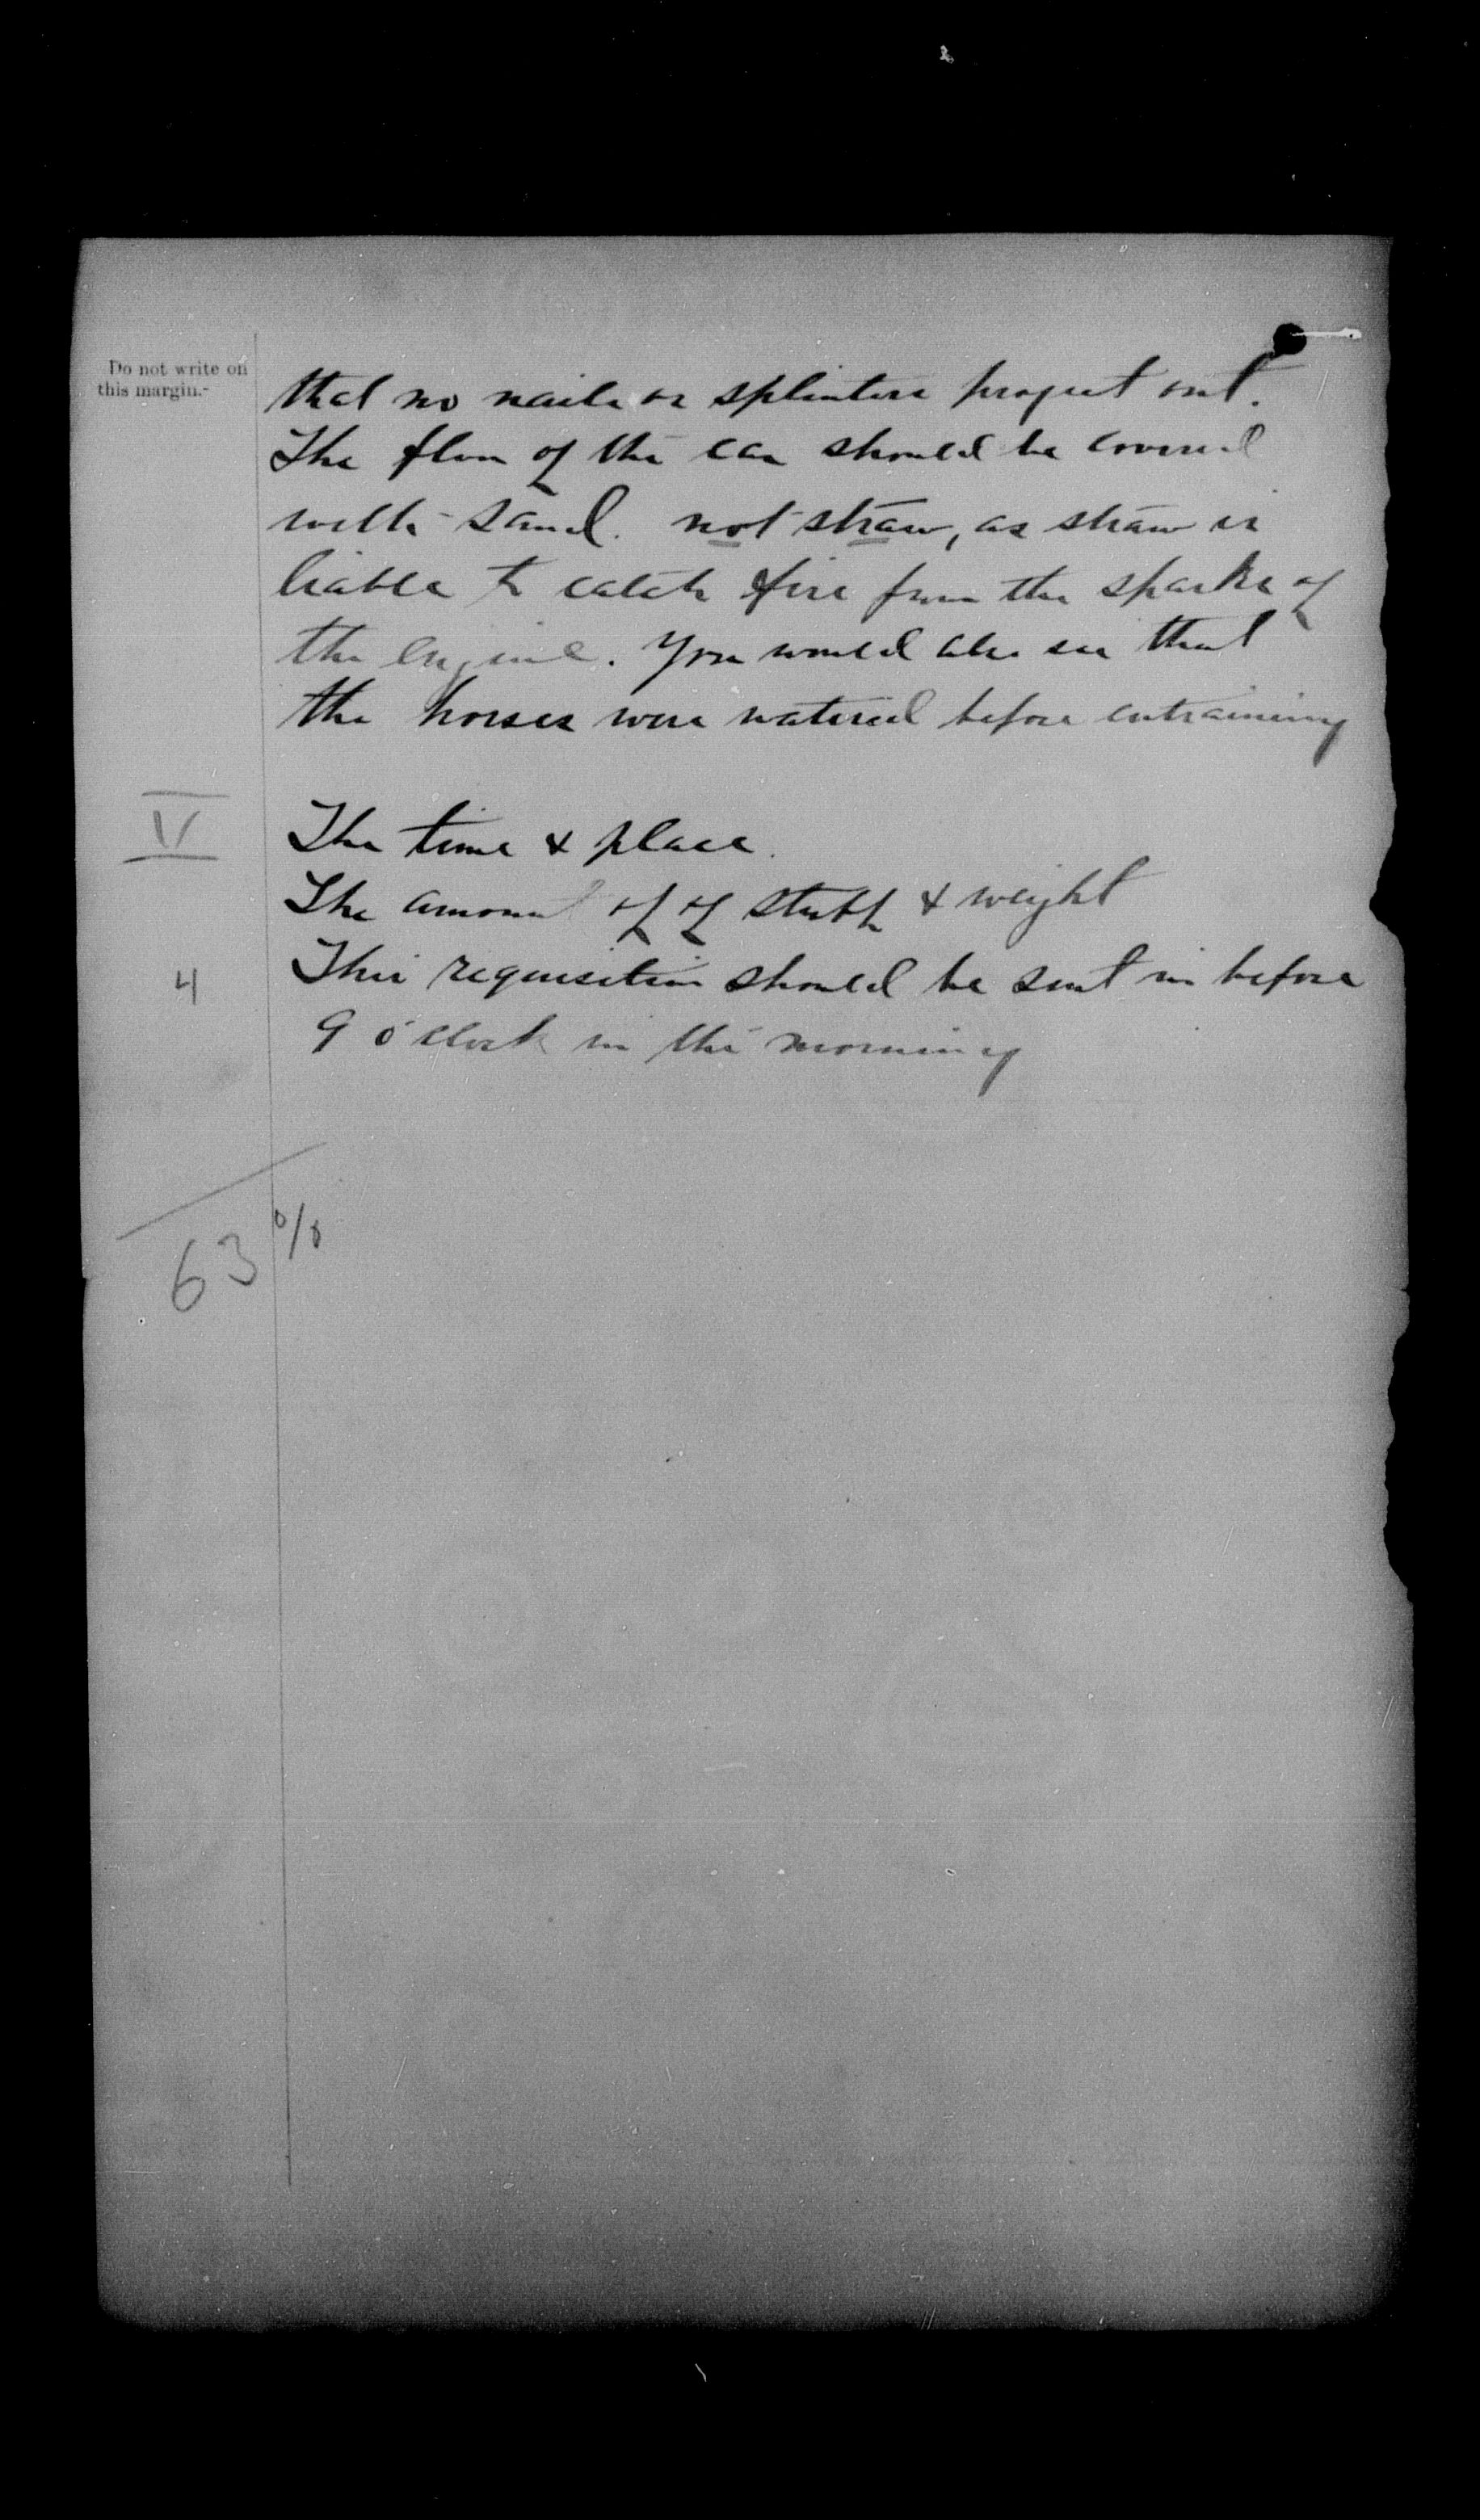 Do not write on
this margin.-
that no nails or splinters project out.
The floor of the car should be covered
with sand. not straw, as straw is
liable to catch fire from the sparks of
the engine. You would also see that
the horses were watered before entraining
IV
The time & place.
The amount of of stuff & weight
4
This requisition should be sent in before
9 o'clock in the morning
63%